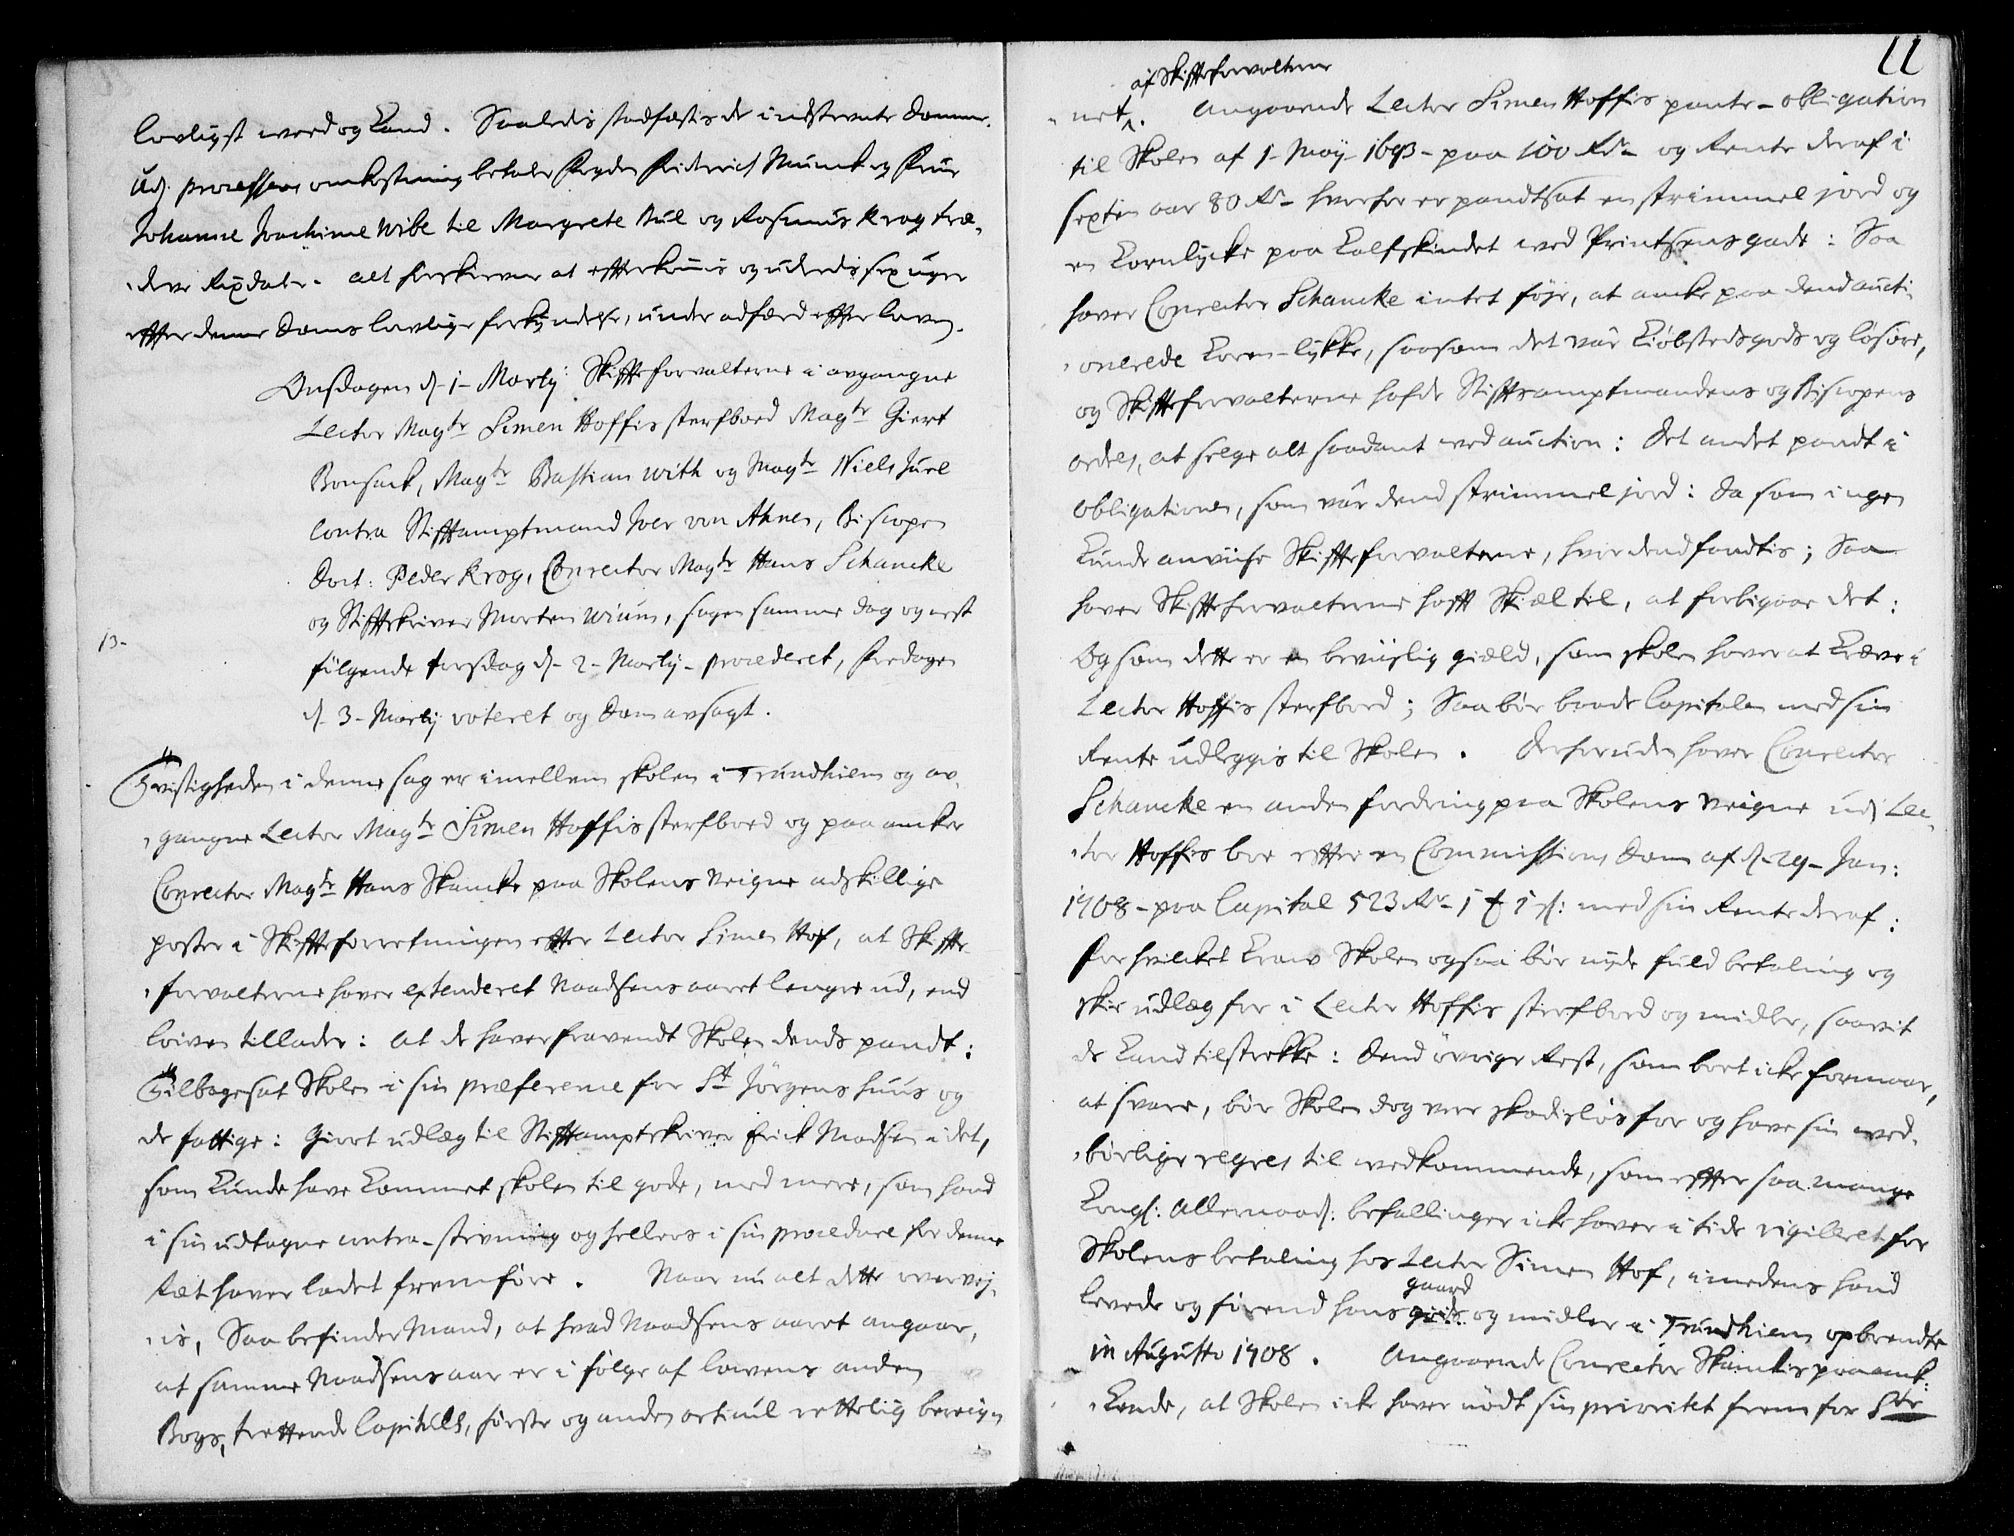 lovligst weed og Kand. Saaledis stadfæstis de indstevnte Domme.
Udj processens omkostning betaler Fryder Friderich Munck og Frue
Johanne Joachime Wibe til Margrete Bul og Rasmus Krag træ-
deve Rixdaler. alt forskrevne at efterkomis og uderedis sex uger
effter denne Doms lovlige forkyndelse, under adfærd effter loven.
Onsdagen d. 1 Martij Skiffteforvalterne i avgangne
Lector Magtr Simen Hoffis sterfboed Magtr Giert
Bonsach, Magtr Bastian With og Magtr Niels Juel
contra Stifftamptmand Iver von Ahnen, Biscopen
Doct: Peder Krog, Conrector Magtr Hans Schancke
og Stifftskriver Morten Wium, sagen samme dag og nest
fölgende torsdag d. 2 Martij procederet, Fredagen
d. 3 Martij voteret og Dom avsagt.
13.
Tvistigheden i denne sag er imellem skolen i Trundhiem og av-
gangne Lector Magtr Simen Hoffis sterfboed og paaancker
Conrector Magtr Hans Skancke paa Skolens veigne adskillige
poster i Skiffteforretningen effter Lector Simen Hof, at Skiffte-
forvalterne haver extenderet Naadsens aaret lenger ud, end
loven tillader: at de haver fravendt Skolen dends pandt:
Tilbagesat Skolen i sin præference for St Jörgens huus og
de fattige: Giort udlæg til Stifftamptskriver Erick Madsen i det,
som kunde have kommet skolen til gode, med mere, som hand
i sin udtagne contra-stevning og hellers i sin procedure for denne
Ræt haver ladet fremföre. Naar nu alt dette overvej-
is, Saa befinder Mand, at hvad Naadsens aaret angaar,
at samme Naadsens aar er i fölge af lowens anden
Bogs, trettende Capitels, förste og anden articul retteligt bereig-
11
net af Skiffteforvalterne. Angaaende Lector Simen Hoffis pante-obligation
til Skolen af 1 Maij 1693 paa 100 Rdr og Rente deraf i
sexten aar 80 Rdr hverfor er pandtsat en strimmel jord og
en Kornlycke paa Kalfskindet ved Printsens gade: Saa
haver Conrector Schancke intet föje, at ancke paa dend aucti-
onerede Koren-lykke, saasom det var Kiöbstedsgods og lösöre,
og Skiffteforvalterne hafde Stifftsamptmandens og Biscopens
ordre, at selge alt saadant ved auction: Det andet pandt i
obligationen, som var dend strimmel jord: da som ingen
Kunde anviise Skiffteforvalterne, hvor dend fandtis; Saa
haver Skiffteforvalterne hafft Skiæl til, at forbigaae det:
Og som dette er en beviislig giæld, som skolen haver at kræve i
Lector Hoffis sterfboed; Saa bör baade Capitalen med sin
Rente udleggis til Skolen. Derforuden haver Conrector
Schancke en anden fordring paa Skolens veigne udj Lec-
tor Hoffis boe effter en Commissions Dom af d. 29 Jan:
1708 paa Capital 523 Rdr 1 ℔ 1 s: med sin Rente deraf:
For hvilcket Kraw Skolen ogsaa bör nyde fuld betaling og
skie udlæg for i Lector Hoffis sterfboed og midler, saavit
de Kand tilstrekke: Dend övrige Rest, som boet icke formaar,
at svare, bör Skolen dog vere skadeslös for og have sin wed-
börlige regres til wedkommende, som effter saa mange
Kongl: Allernaad: befallinger icke haver i tide vigilleret for
Skolens betaling hos Lector Simen Hof, imedens hand
levede og förend hans gaard og midler i Trundhiem opbrendte
in Augusto 1708. Angaaende Conrector Skanckis paaanck-
Kende, at Skolen icke haver nödt sin prioritet frem for Ste